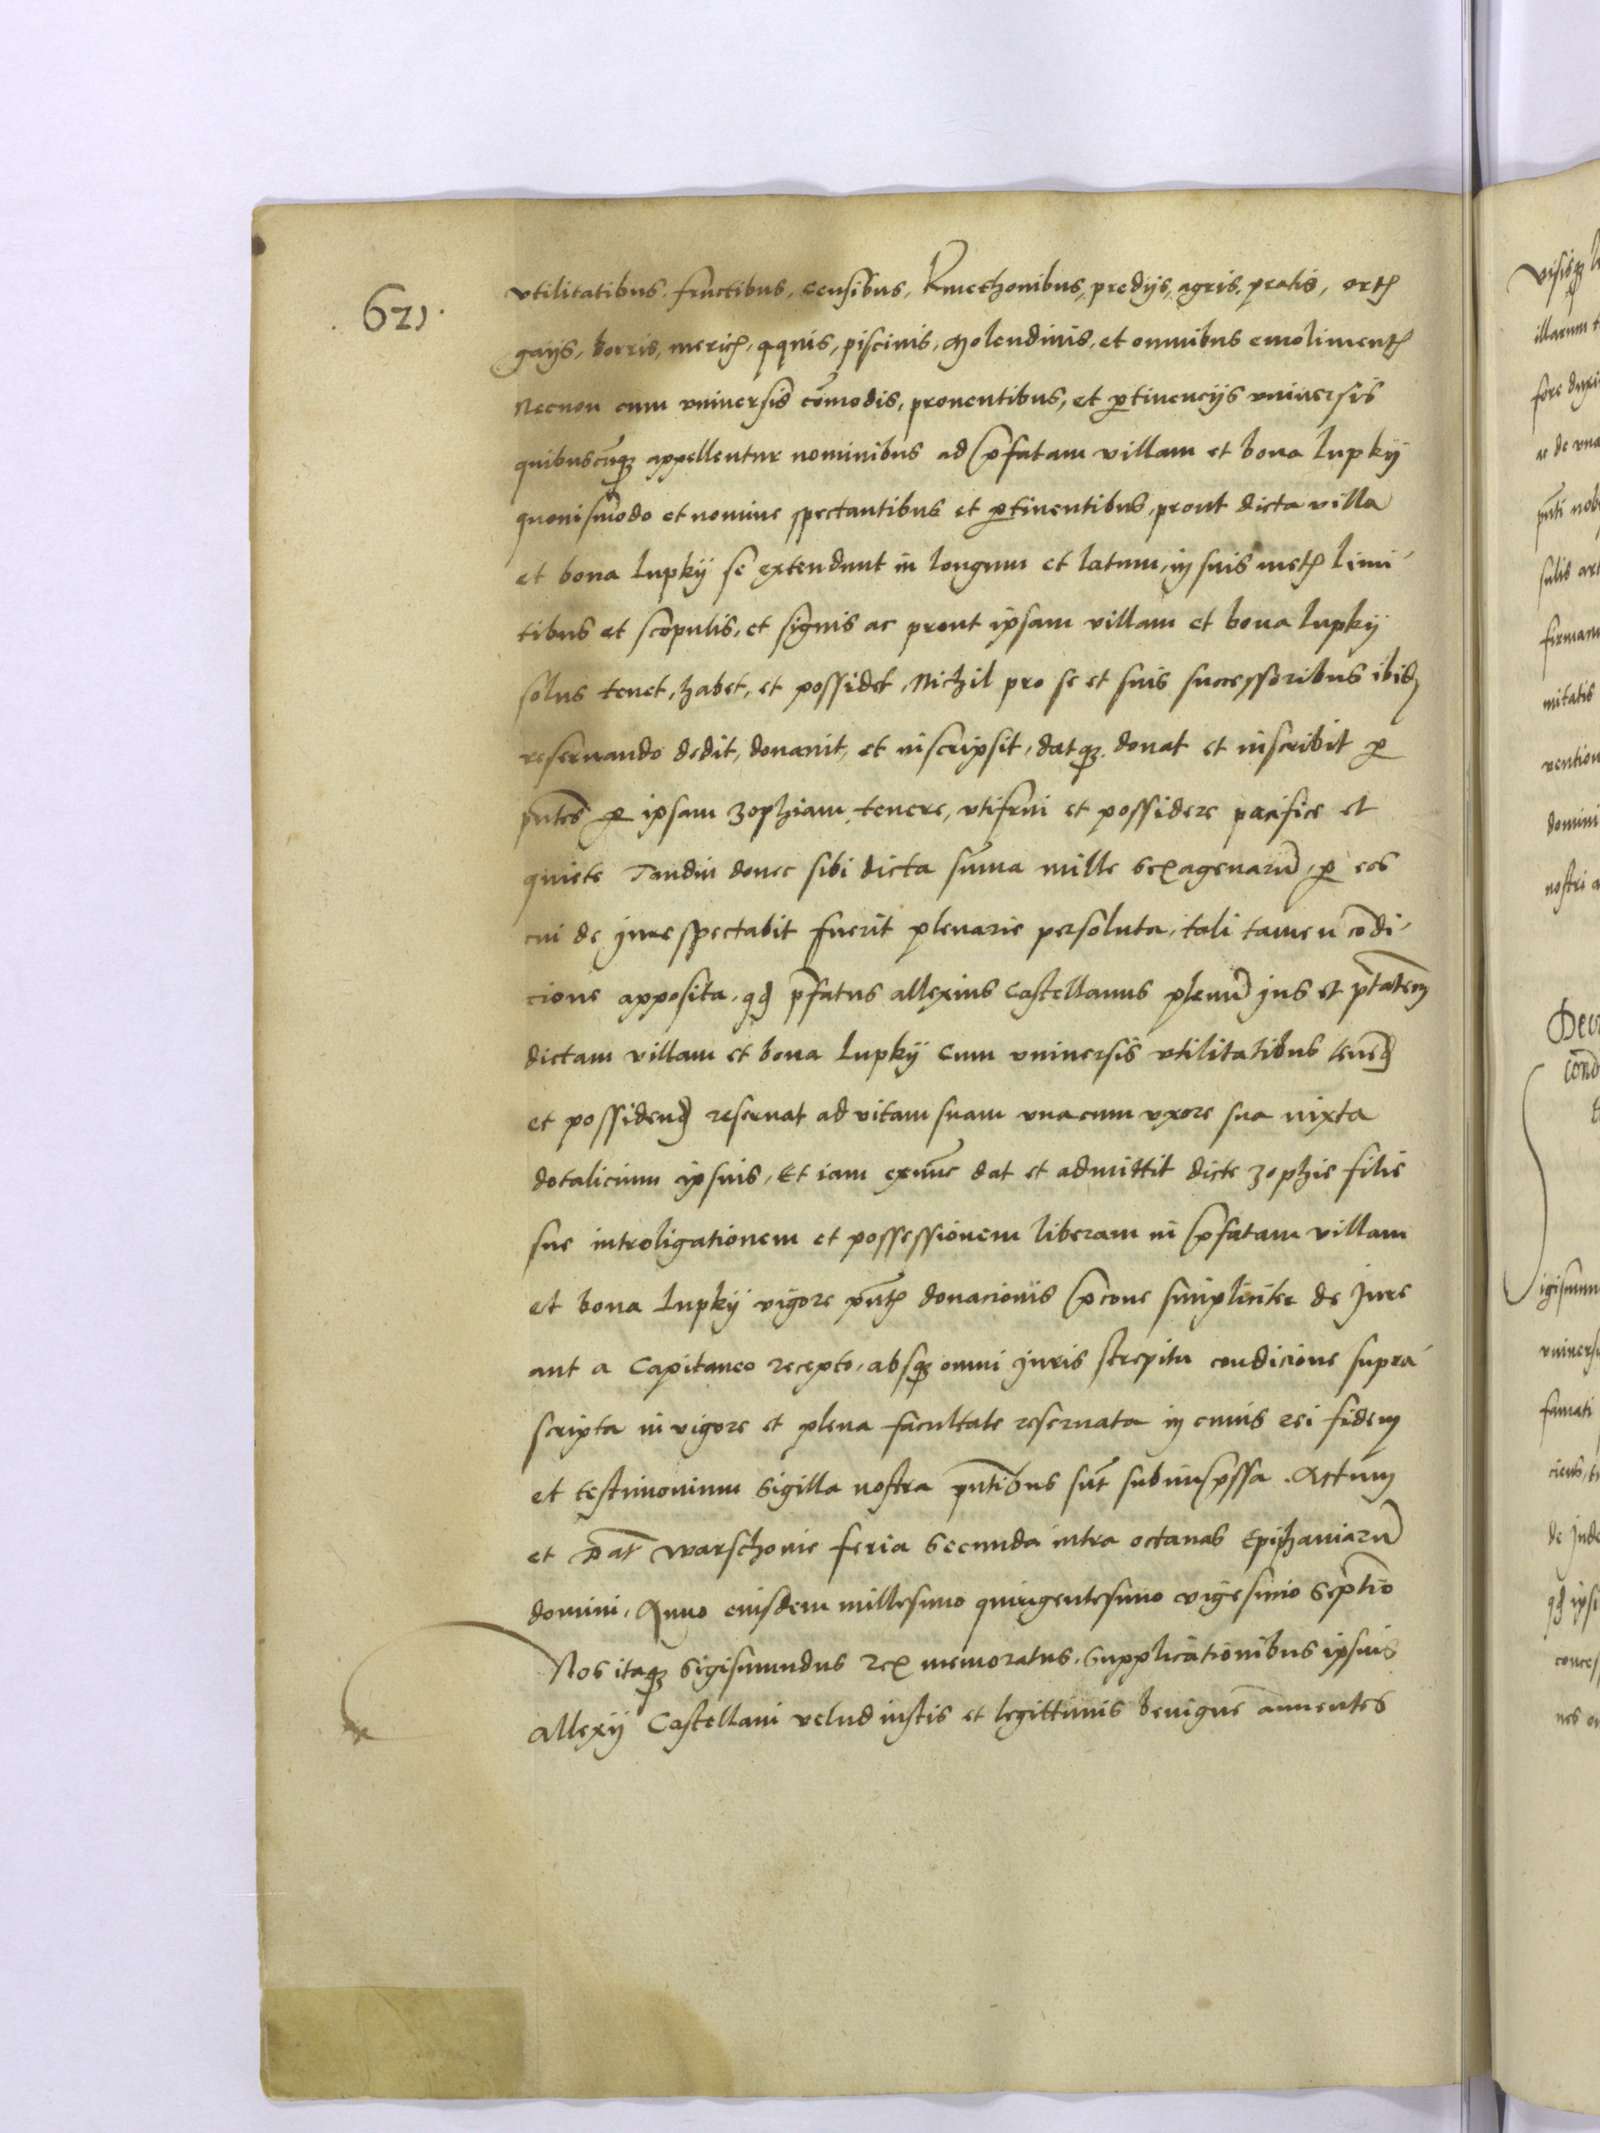 621.
vtilitatibus, fructibus, censibus, Kmethonibus, predijs, agris, pratis, ort
gajis, borris, meric, aquis, piscinis, Molendinis, et omnibus emoliment
Necnon cum vniuersis comodis, prouentibus, et ptinencijs vniuersis
quibuscunq appellentur nominibus ad pfatam villam et bona Lupky
quouismodo et nomine spectantibus et ptinentibus, prout dicta villa
et bona Lupky se extendunt in longum et latum, in suis met limi
tibus et scopulis, et signis ac prout ipsam villam et bona Lupky
solus tenet, habet, et possidet, Nichil pro se et suis successoribus ibid
reseruando dedit, donauit, et inscripsit, datq donat et inscribit p
pntes p ipsam Zophiam tenere, vtifrui et possidere pacifice et
quiete Tamdiu donec sibi dicta suma mille sexagenaru, p eos
cui de jure spectabit fuerit plenarie persoluta, tali tamen condi
cione apposita, qd pfatus allexius Castellanus plenu jus et ptatem
dictam villam et bona Lupky cum vniuersis vtilitatibus tened
et possidend reseruat ad vitam suam vnacum vxore sua iuxta
dotalicium ipsius, Et iam exnunc dat et admittit dicte Zophie filie
sue introligationem et possessionem liberam in pfatam villam
et bona Lupky vigore pnt donacionis pcone simpliciter de Jure
aut a Capitaneo recepto, absq omni juris strepitu condicione supra
scripta in vigore et plena facultate reseruata in cuius rei fidem
et testimonium sigilla nostra pntibus sut subimpssa. Actum
et Dat Warschouie feria secunda intra octauas Epiphaniaru
domini, Anno eiusdem millesimo quingentesimo vigesimo Septio
Nos itaq Sigismundus Rex memoratus, Supplicationibus ipsius
allexij Castellani velud iustis et legittimis benigne annuentes